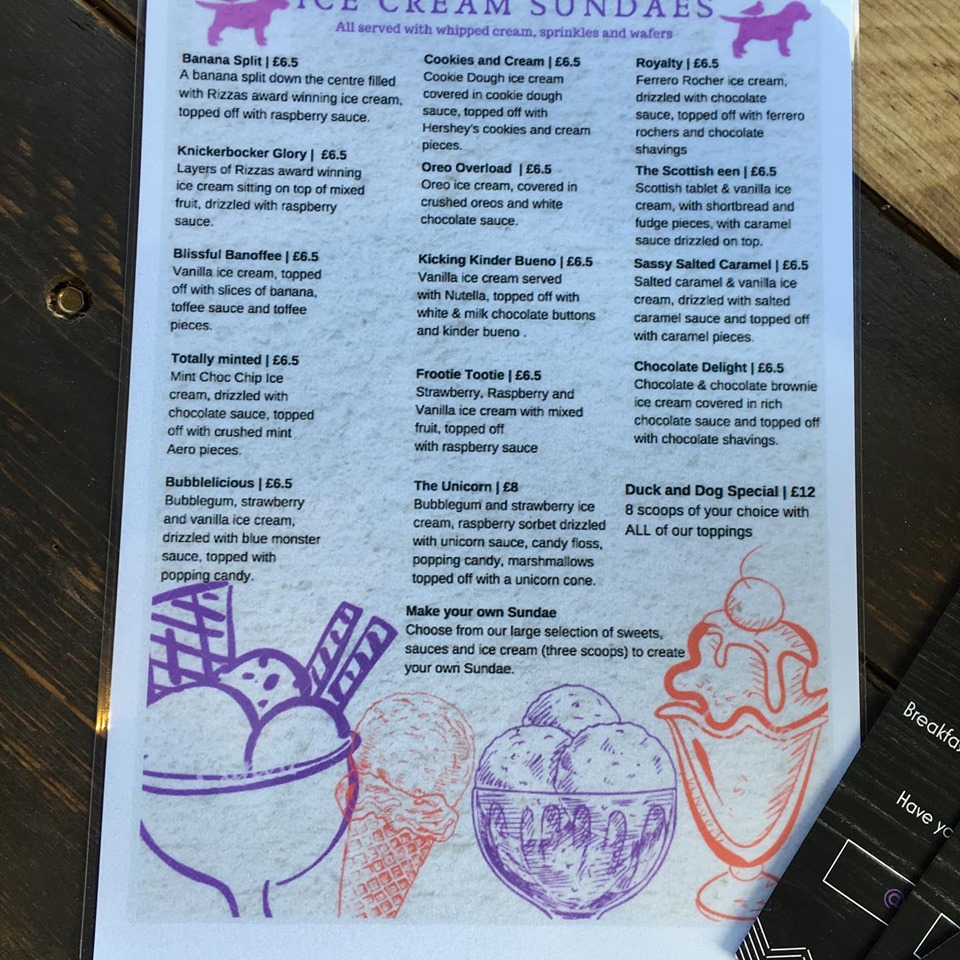 ICE CREAM SUNDAES
All served with whipped cream, sprinkles and wafers
Banana Split | £6.5
A banana split down the centre filled
with Rizzas award winning ice cream,
topped off with raspberry sauce.
Knickerbocker Glory | £6.5
Layers of Rizzas award winning
ice cream sitting on top of mixed
fruit, drizzled with raspberry
sauce.
Blissful Banoffee | £6.5
Vanilla ice cream, topped
off with slices of banana,
toffee sauce and toffee
pieces.
Totally minted | £6.5
Mint Choc Chip Ice
cream, drizzled with
chocolate sauce, topped
off with crushed mint
Aero pieces.
Bubblelicious | £6.5
Bubblegum, strawberry
and vanilla ice cream,
drizzled with blue monster
sauce, topped with
popping candy.
Cookies and Cream | £6.5
Cookie Dough ice cream
covered in cookie dough
sauce, topped off with
Hershey's cookies and cream
pieces.
Oreo Overload | £6.5
Oreo ice cream, covered in
crushed oreos and white
chocolate sauce.
Kicking Kinder Bueno | £6.5
Vanilla ice cream served
with Nutella, topped off with
white & milk chocolate buttons
and kinder bueno .
Frootie Tootie | £6.5
Strawberry, Raspberry and
Vanilla ice cream with mixed
fruit, topped off
with raspberry sauce
The Unicorn | £8
Bubblegum and strawberry ice
cream, raspberry sorbet drizzled
with unicorn sauce, candy floss,
popping candy, marshmallows
topped off with a unicorn cone.
Make your own Sundae
Choose from our large selection of sweets,
sauces and ice cream (three scoops) to create
your own Sundae.
Royalty | £6.5
Ferrero Rocher ice cream,
drizzled with chocolate
sauce, topped off with ferrero
rochers and chocolate
shavings
The Scottish een | £6.5
Scottish tablet & vanilla ice
cream, with shortbread and
fudge pieces, with caramel
sauce drizzled on top.
Sassy Salted Caramel | £6.5
Salted caramel & vanilla ice
cream, drizzled with salted
caramel sauce and topped off
with caramel pieces.
Chocolate Delight | £6.5
Chocolate & chocolate brownie
ice cream covered in rich
chocolate sauce and topped off
with chocolate shavings.
Duck and Dog Special | £12
8 scoops of your choice with
ALL of our toppings
Breakfas
Have yo
@